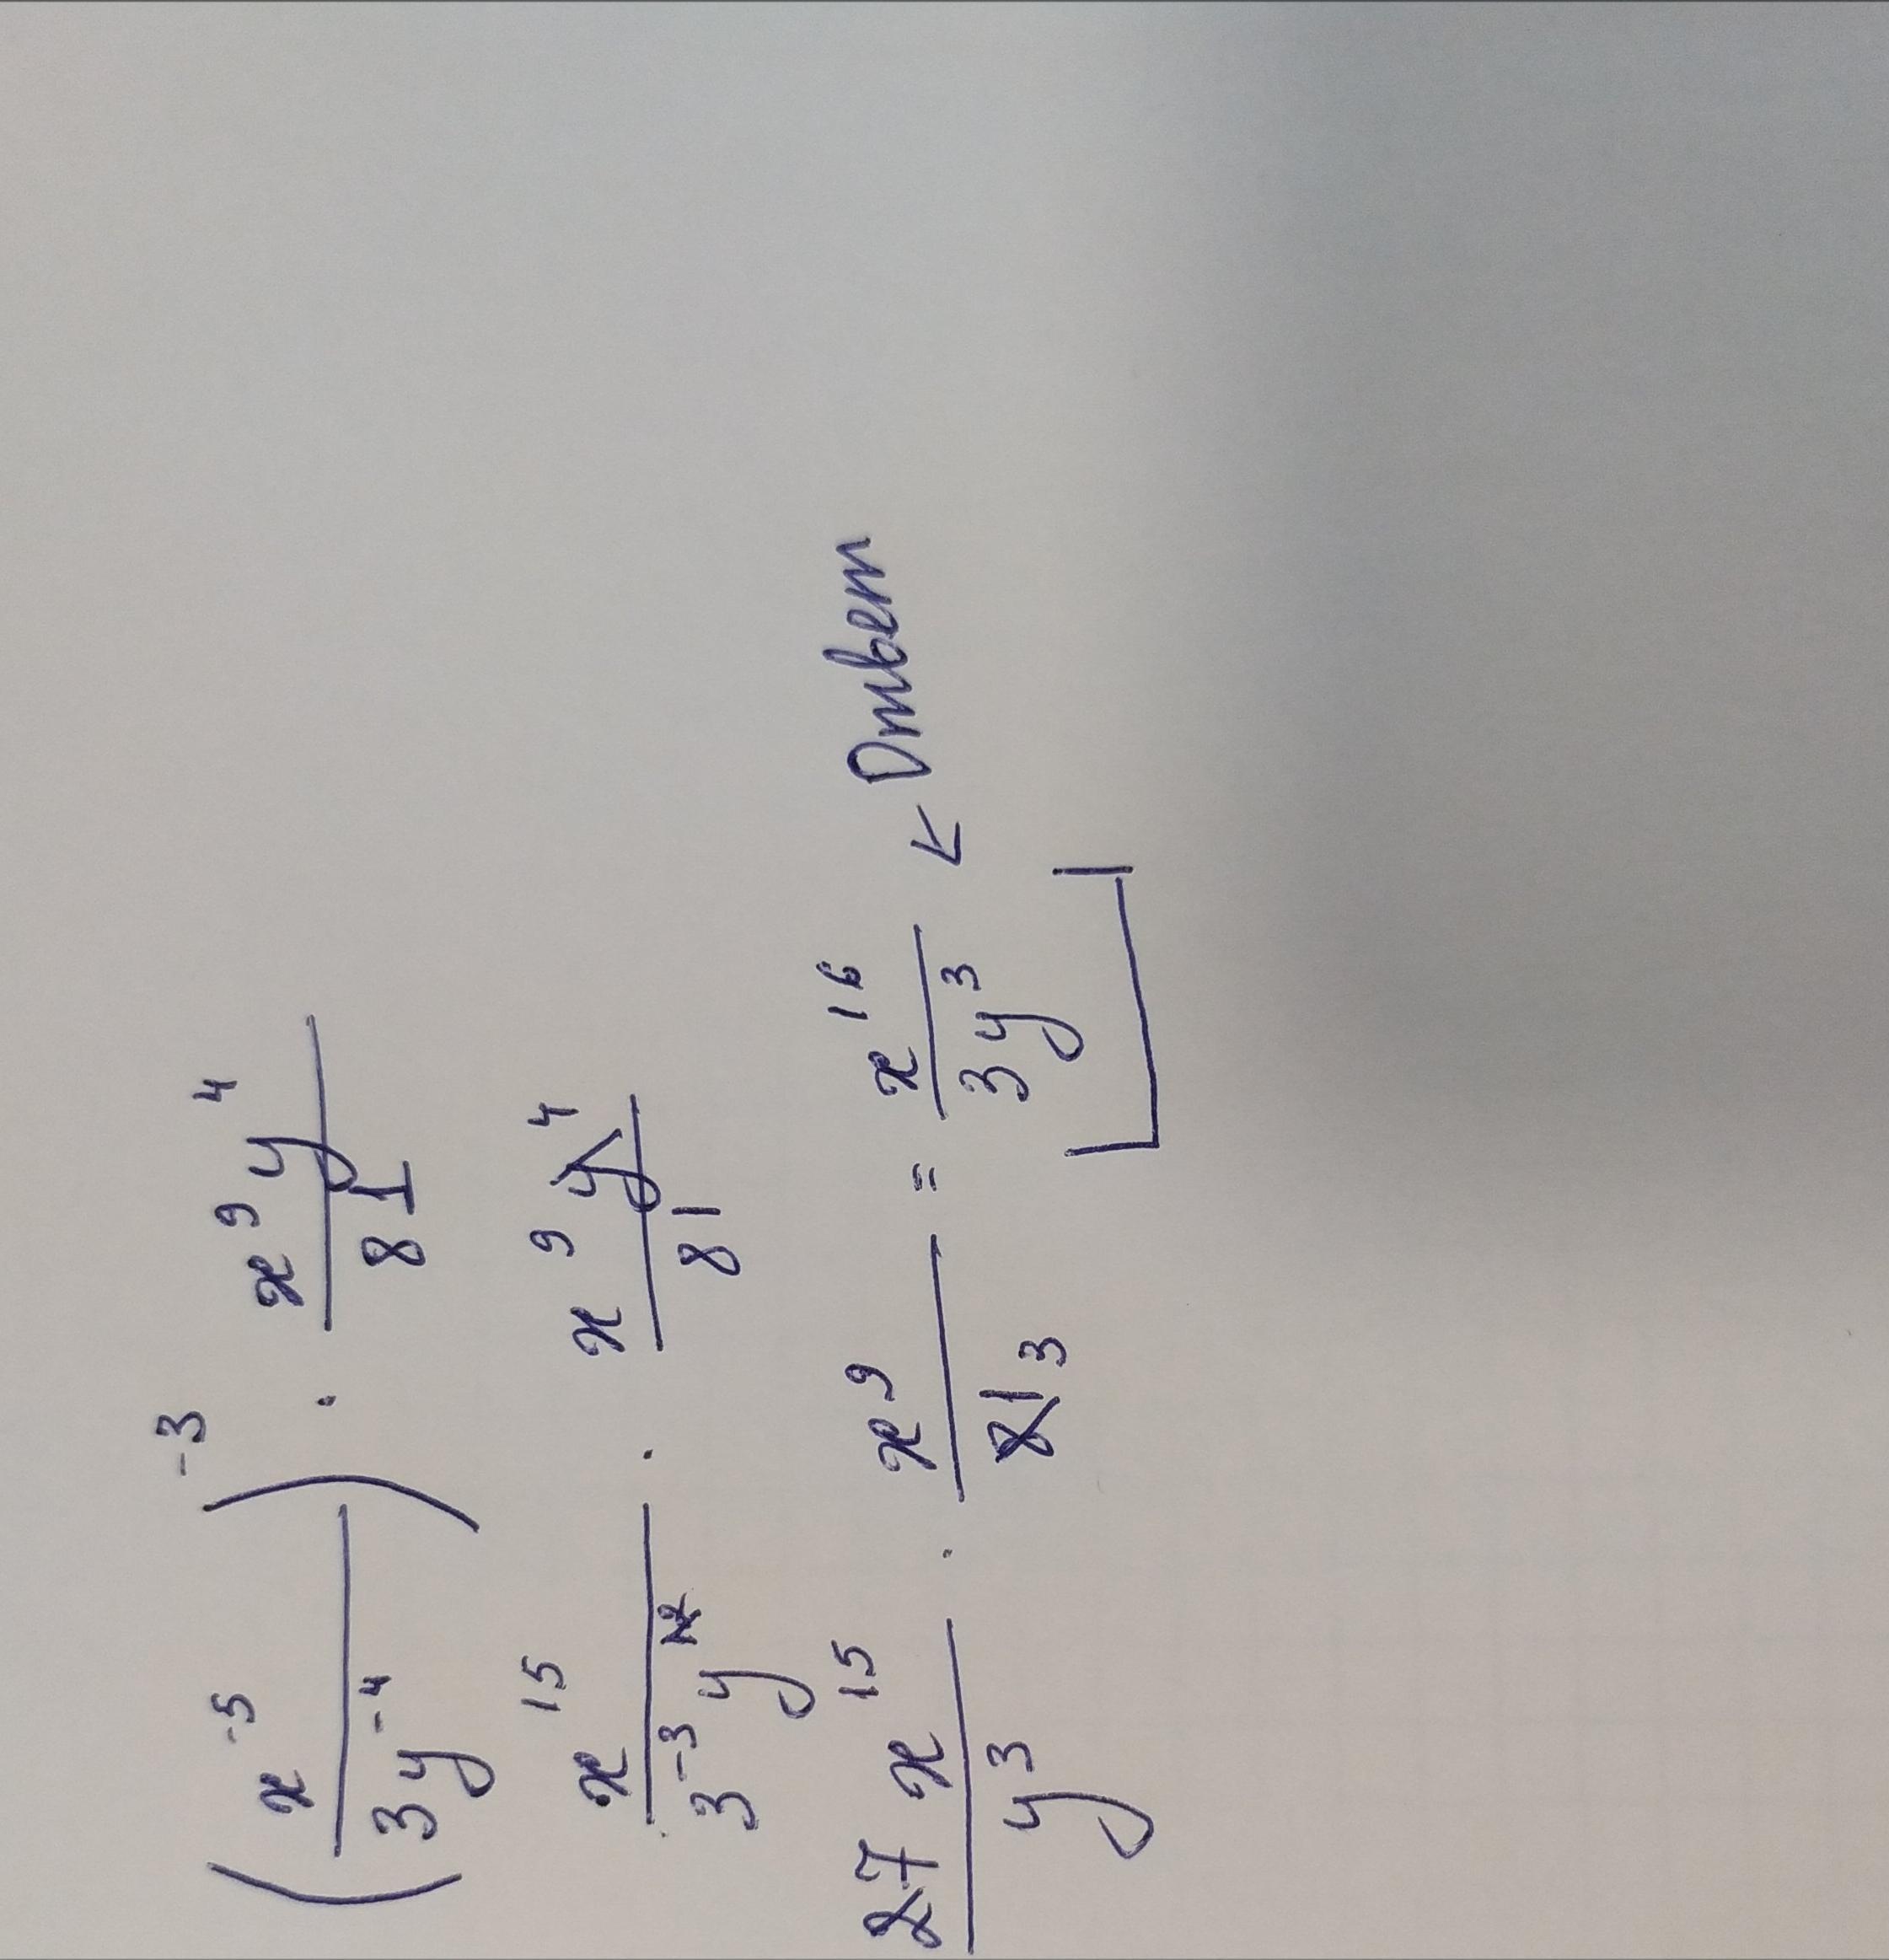 (x⁻⁵ / 3y⁻⁴)⁻³ · x⁹y⁴ / 81
x¹⁵ / 3⁻³y¹² · x⁹y⁴ / 81
27x¹⁵ / y³ · x⁹ / 81 3 = x¹⁶ / 3y³ ← Ответ